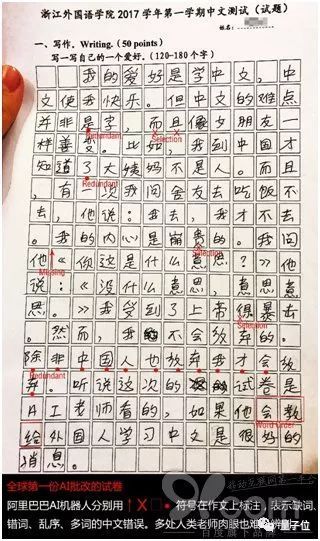 浙江外国语学院2017学年第一学期中文测试（试题）
一、写作。Writing.（50 points）
写一写自己的一个爱好。（120-180个字）
我的爱好是学中文，中
文使我快乐。但中文的难点
并非是字，而且像女朋友一
Redundant
Selection
样善变。比如，我到中国才
知道了大姨妈不是人。而且
Redundant
，有一次我问舍友去吃饭不
去，他说：我去，我才不去
。我的内心是崩贵的。我问
Selection
他《你这是什么意思？》他
Missing
说：《没什么意思，意思意
思。》我受到了上帝很暴击
Selection
。然而，我不会放弃的。
除非中国人也放弃我才会放
Redundant
弃。听说这次的试卷是
AI老师看的，如果他会教
Word Order
给外国人学习中文是很好的
消息。
全球第一份AI批改的试卷
阿里巴巴AI机器人分别用 ↑ X □ ● 符号在作文上标注，表示缺词、
错词、乱序、多词的中文错误。多处人类老师肉眼也难辨别
量子位